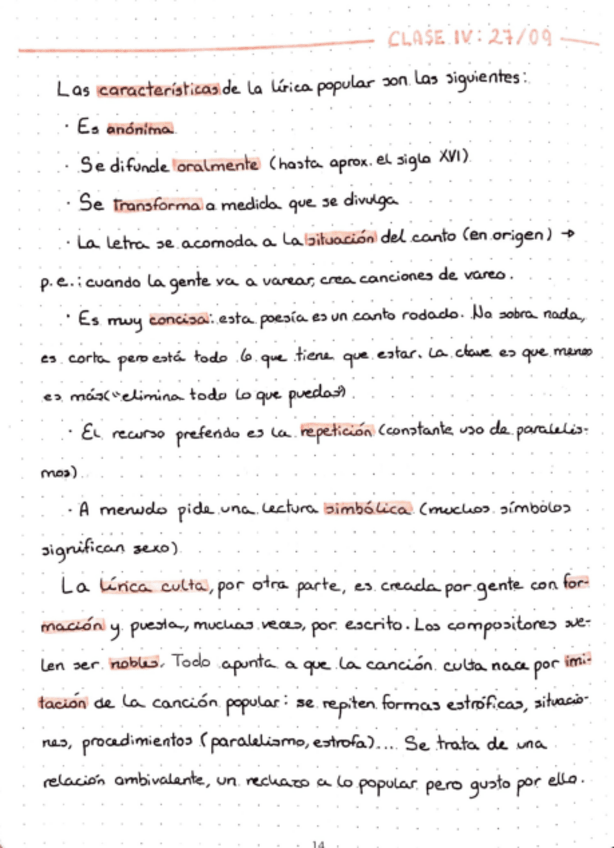 CLASE IV: 27/09
Las características de la lírica popular son las siguientes:
· Es anónima
· Se difunde oralmente (hasta aprox. el siglo XVI)
· Se transforma a medida que se divulga
· La letra se acomoda a la situación del canto (en origen) →
p.e.: cuando la gente va a varear, crea canciones de vareo.
· Es muy concisa: esta poesía es un canto rodado. No sobra nada,
es corta pero está todo lo que tiene que estar. La clave es que menos
es más ("elimina todo lo que puedas")
· El recurso preferido es la repetición (constante uso de paralelis-
mos)
· A menudo pide una lectura simbólica (muchos símbolos
significan sexo)
La lírica culta, por otra parte, es creada por gente con for-
mación y puesta, muchas veces, por escrito. Los compositores sue-
len ser nobles. Todo apunta a que la canción culta nace por imi-
tación de la canción popular: se repiten formas estróficas, situacio-
nes, procedimientos (paralelismo, estrofa)... Se trata de una
relación ambivalente, un rechazo a lo popular pero gusto por ello.
14